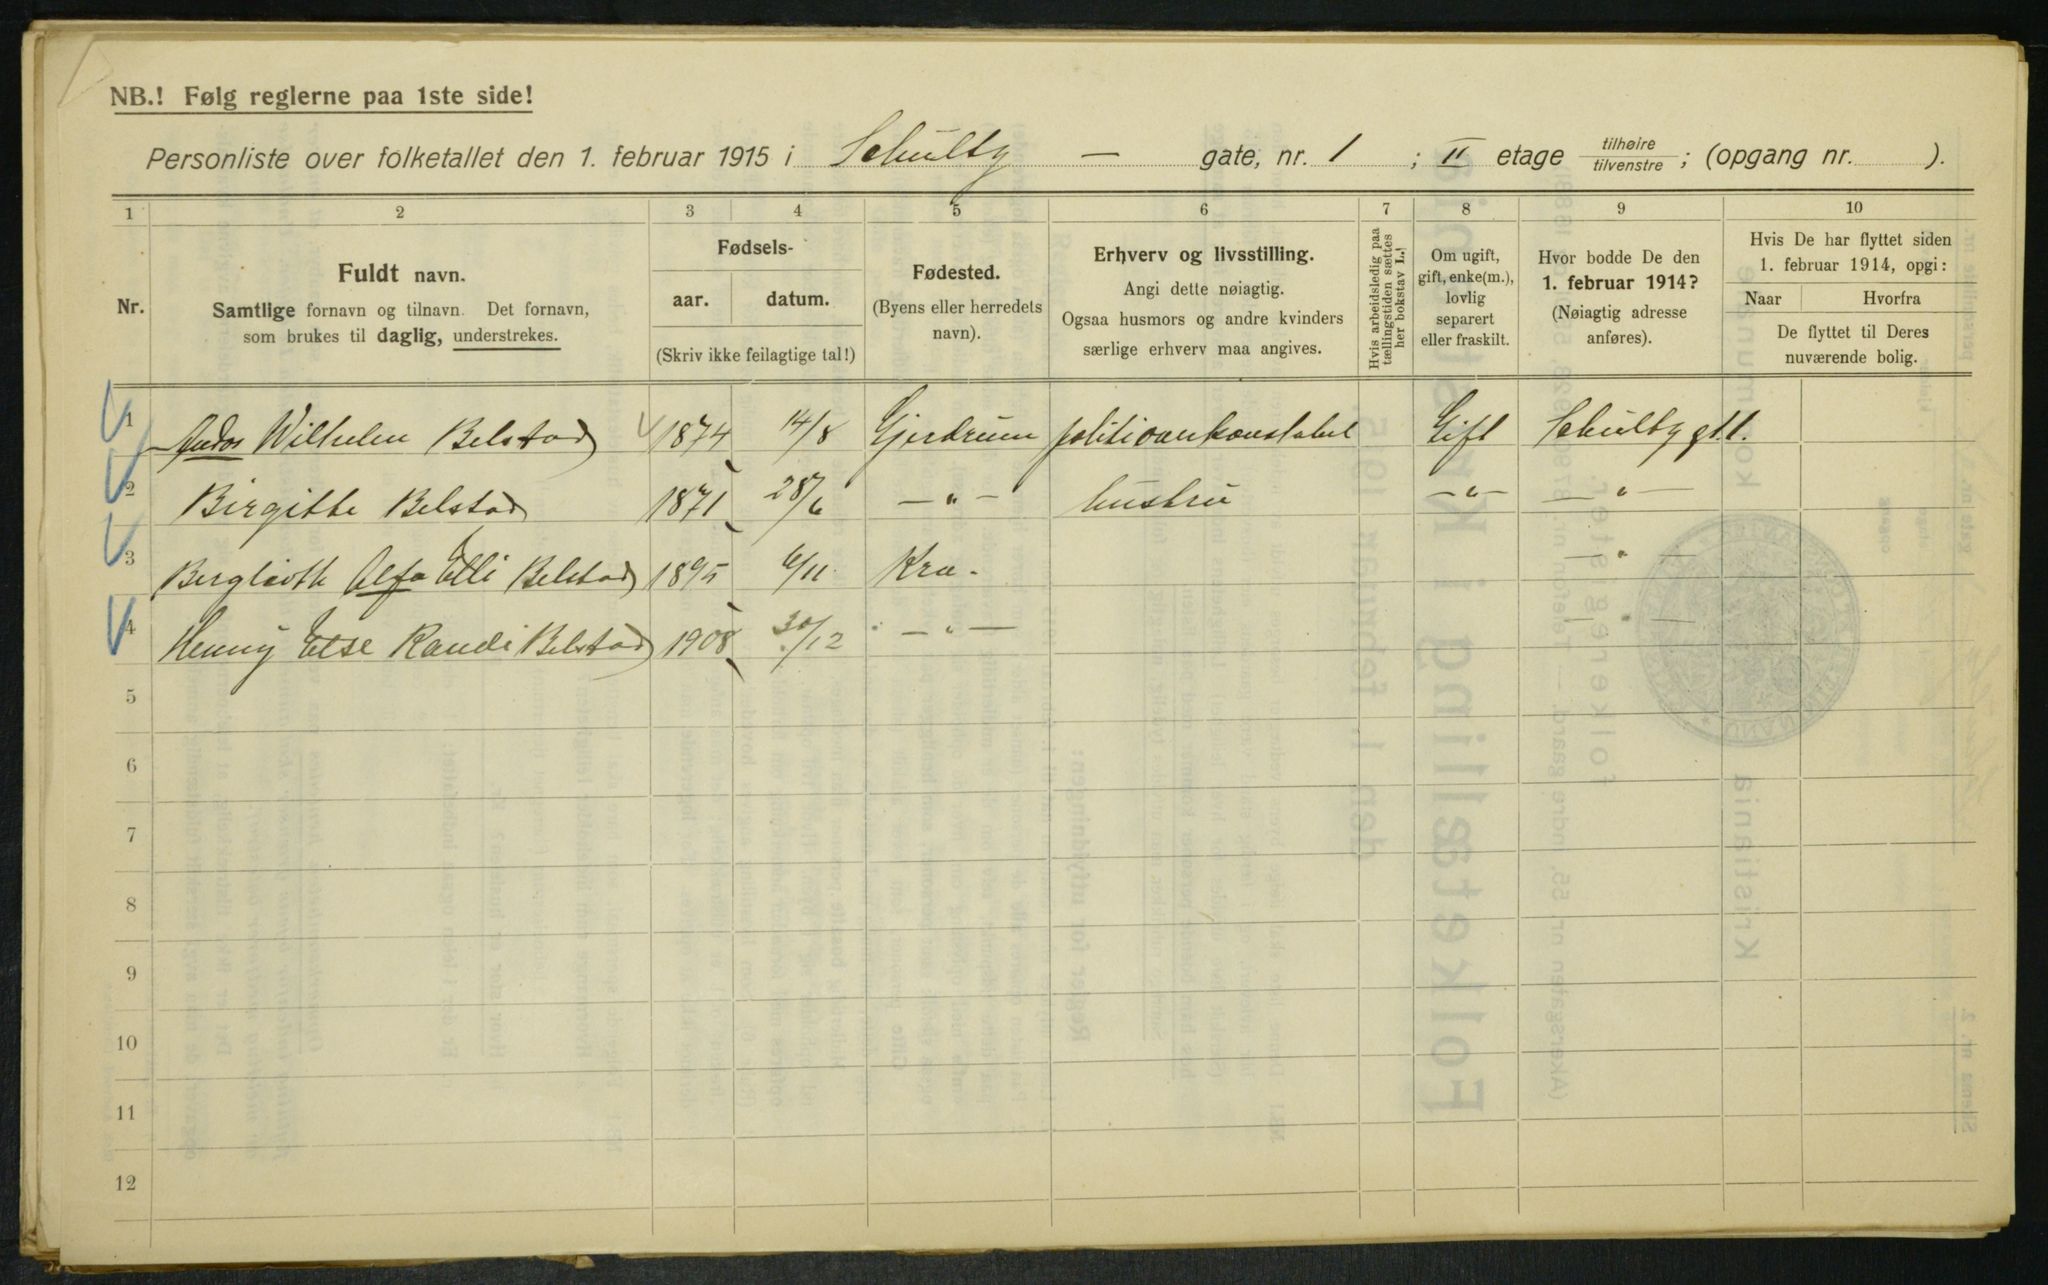 NB.! Følg reglerne paa 1ste side!
Personliste over folketallet den 1. februar 1915 i Schultz — gate, nr. 1 ; II etage tilhøire tilvenstre ; (opgang nr. ).
1 2 3 4 5 6 7 8 9 10
Nr.
Fuldt navn.
Samtlige fornavn og tilnavn. Det fornavn,
som brukes til daglig, understrekes.
Fødsels-
aar. datum.
(Skriv ikke feilagtige tal!)
Fødested.
(Byens eller herredets
navn).
Erhverv og livsstilling.
Angi dette nøiagtig.
Ogsaa husmors og andre kvinders
særlige erhverv maa angives.
Hvis arbeidsledig paa
tællingstiden sættes
her bokstav L.!
Om ugift,
gift, enke(m.),
lovlig
separert
eller fraskilt.
Hvor bodde De den
1. februar 1914?
(Nøiagtig adresse
anføres).
Hvis De har flyttet siden
1. februar 1914, opgi:
Naar Hvorfra
De flyttet til Deres
nuværende bolig.
1 Wilhelm Belstad 1874 14/8 Gjerdrum politioverkonstabel Gift Schultz gt. 1.
2 Birgitte Belstad 1871 28/6 —"— hustru —"— —"—
3 Berglioth Alfa Elli Belstad 1895 6/11 Kra. —"—
4 Henny Else Randi Belstad 1908 30/12 —"— —"—
5
6
7
8
9
10
11
12